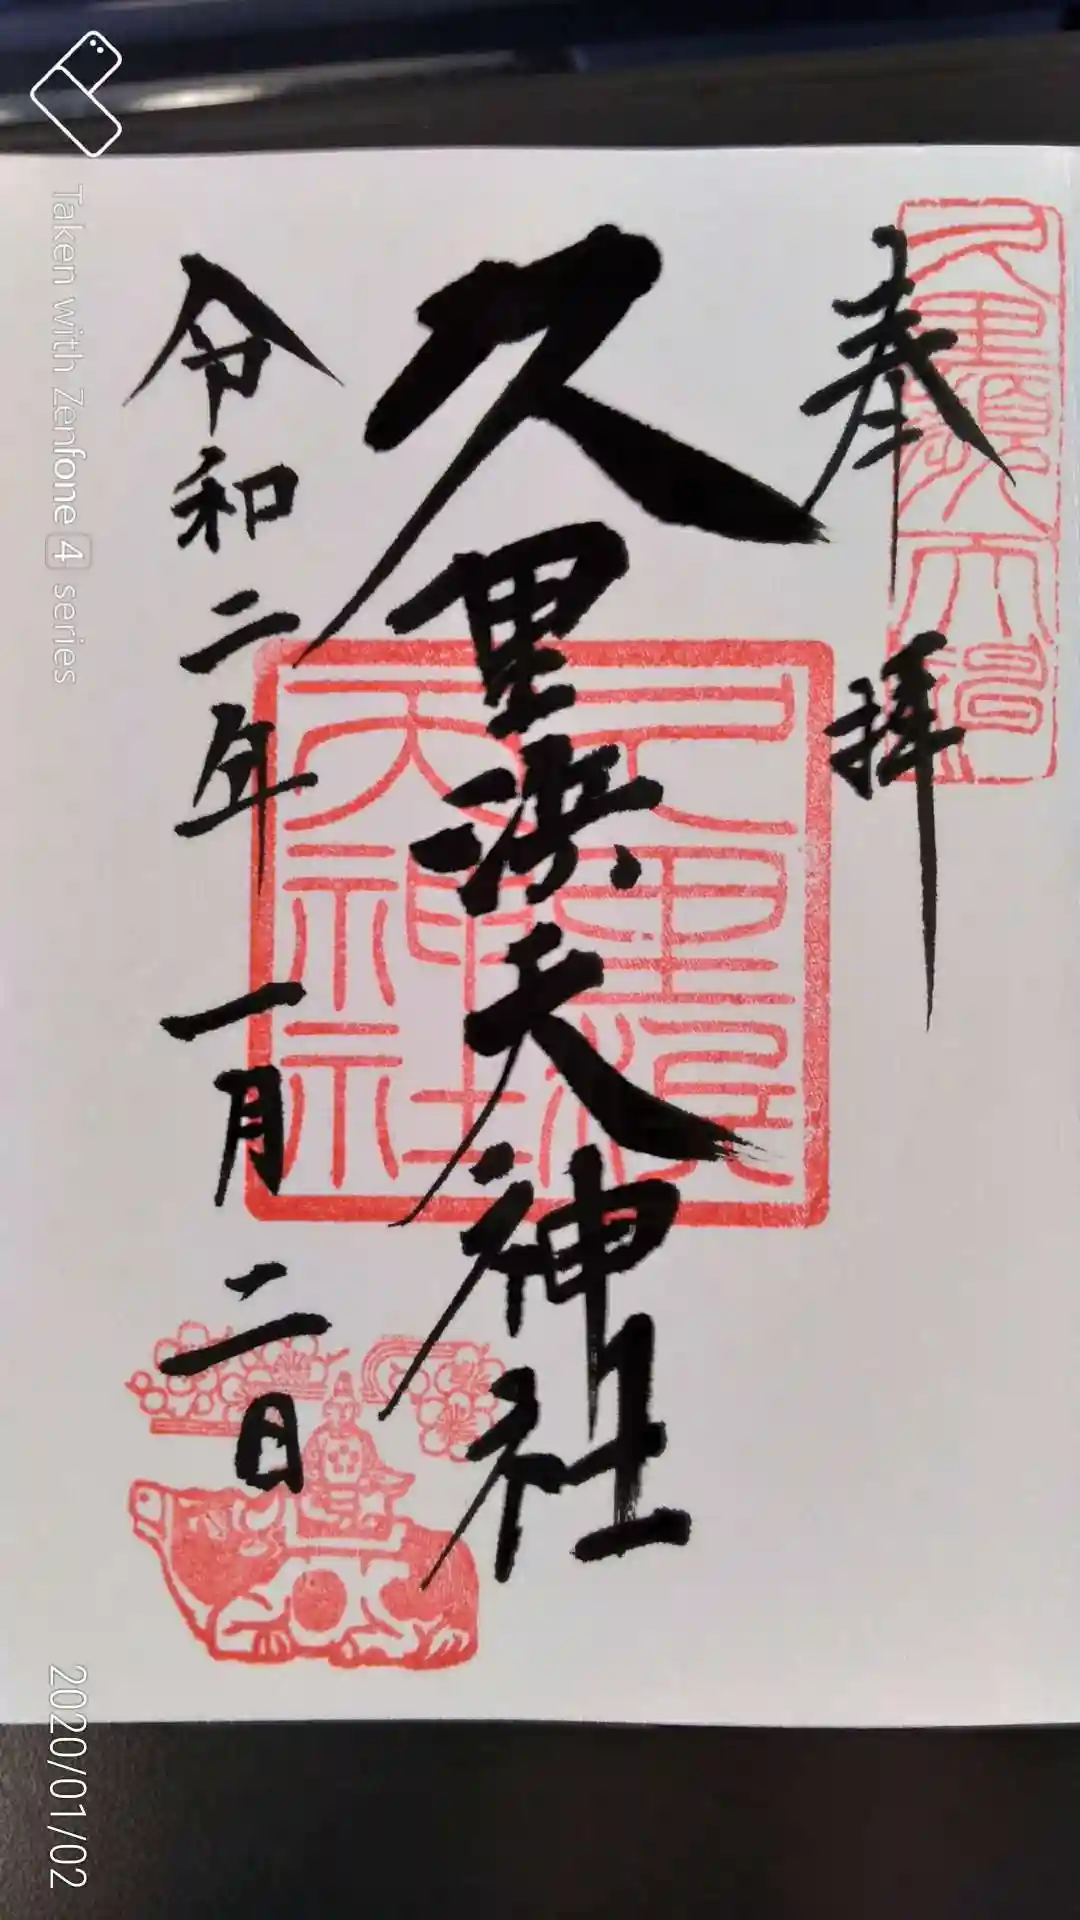 奉拝
久里浜天神社
令和二年一月二日
久里濱
天神社
Taken with Zenfone 4 series
2020/01/02